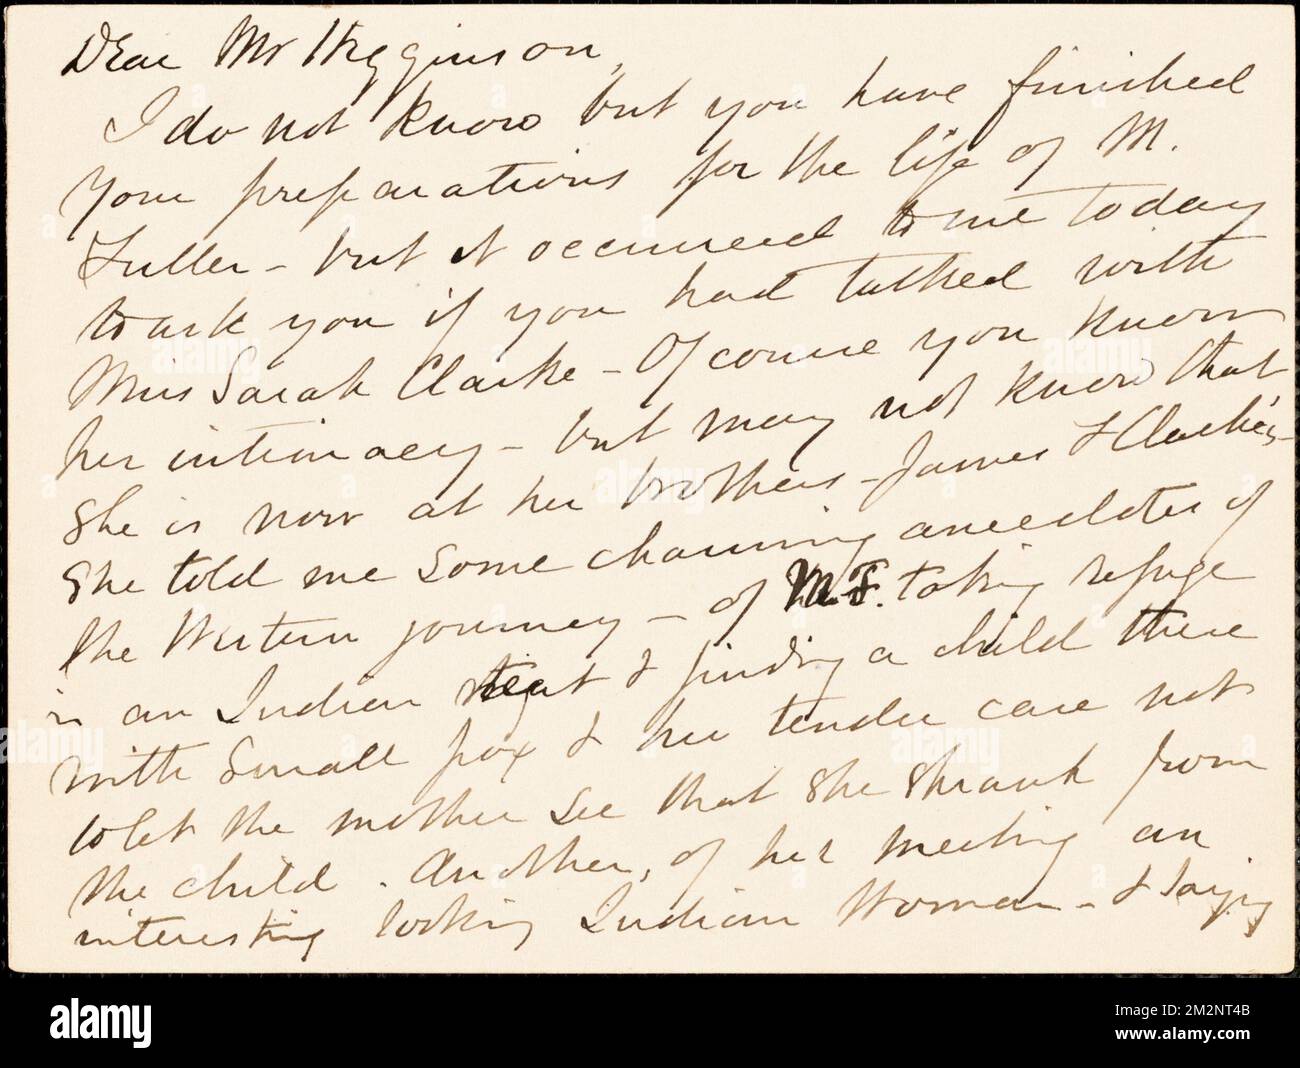 Dear Mr Higginson,
I do not know but you have finished
your preparations for the life of M.
Fuller - but it occurred to me today
to ask you if you had talked with
Miss Sarah Clarke - Of course you know
her intimacy - but may not know that
she is now at her brothers - James F Clarke's -
She told me some charming anecdotes of
the Western journey - of M.F. taking refuge
in an Indian tent & finding a child there
with small pox & her tender care not
to let the mother see that she shrank from
the child. Another, of her meeting an
interesting looking Indian Woman - & saying
alamy
Image ID: 2M2NT4B
www.alamy.com